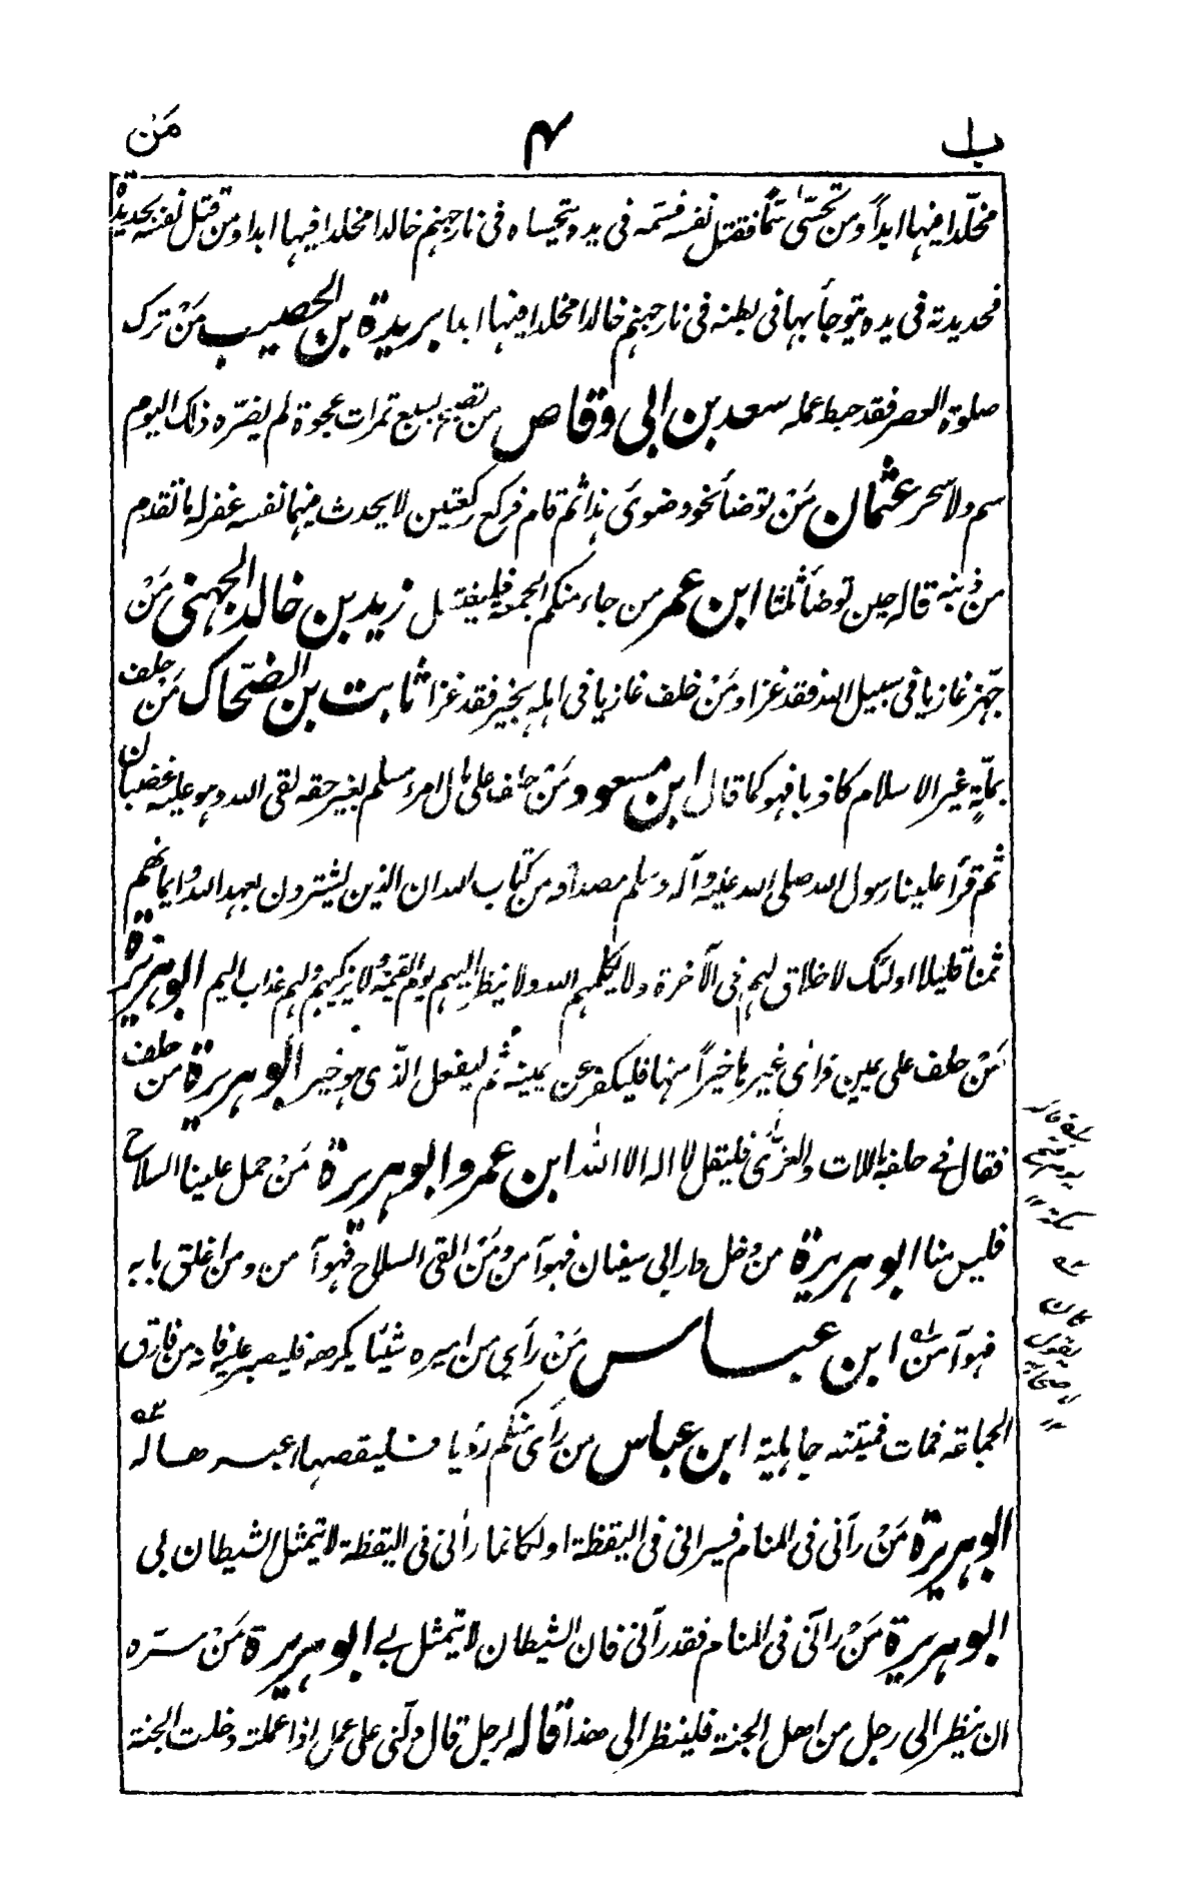 باب ۴ مَن
مخلّدا فيها ابداً ومن تحسّى سمّا فقتل نفسه فسمه فى يده يتحساه فى نار جهنم خالدا مخلدا فيها ابدا ومن قتل نفسه بحديدة
فحديدته فى يده يتوجأ بها فى بطنه فى نار جهنم خالدا مخلدا فيها ابدا بريدة بن الحصيب مَنْ ترك
صلوة العصر فقد حبط عمله سعد بن ابى وقاص من تصبح بسبع تمرات عجوة لم يضرّه ذلك اليوم
سم ولا سحر عثمان مَنْ توضأ نحو وضوئى هذا ثم قام فركع ركعتين لا يحدث فيهما نفسه غفر له ما تقدم
من ذنبه قاله حين توضأ ثلثا ابن عمر من جاء منكم الجمعة فليغتسل زيد بن خالد الجهنى مَنْ
جهّز غازيا فى سبيل الله فقد غزا ومَنْ خلف غازيا فى اهله بخير فقد غزا ثابت بن الضحّاك مَنْ حلف
بملّةٍ غير الاسلام كاذبا فهو كما قال ابن مسعود مَنْ حلف على مال امرء مسلم بغير حقه لقى الله وهو عليه غضبان
ثم قرأ علينا رسول الله صلى الله عليه وآله وسلم مصداقه من كتاب الله ان الذين يشترون بعهد الله وايمانهم
ثمنا قليلا اولئك لا خلاق لهم فى الآخرة ولا يكلمهم الله ولا ينظر اليهم يوم القيمة ولا يزكيهم ولهم عذاب اليم ابو هريرة
مَنْ حلف على يمين فرأى غيرها خيراً منها فليكفر عن يمينه ثم ليفعل الذّى هو خير ابو هريرة من حلف
فقال فى حلفه باللات والعزّى فليقل لا اله الا الله ابن عمر وابو هريرة مَنْ حمل علينا السلاح
فليس منا ابو هريرة من دخل دار ابى سفيان فهو آمن ومَنْ القى السلاح فهو آمن ومن اغلق بابه
فهو آمن ابن عباس مَنْ رأى من اميره شيئا يكرهه فليصبر عليه فانه من فارق
الجماعة فمات فميتته جاهلية ابن عباس من رأى منكم رؤيا فليقصها اعبرها له
ابو هريرة مَنْ رآنى فى المنام فسيرانى فى اليقظة او لكانما رآنى فى اليقظة لا يتمثل الشيطان بى
ابو هريرة مَنْ رآنى فى المنام فقد رآنى فان الشيطان لا يتمثل بى ابو هريرة مَنْ سرّه
ان ينظر الى رجل من اهل الجنة فلينظر الى هذا قاله لرجل قال دلّنى على عمل اذا عملته دخلت الجنة